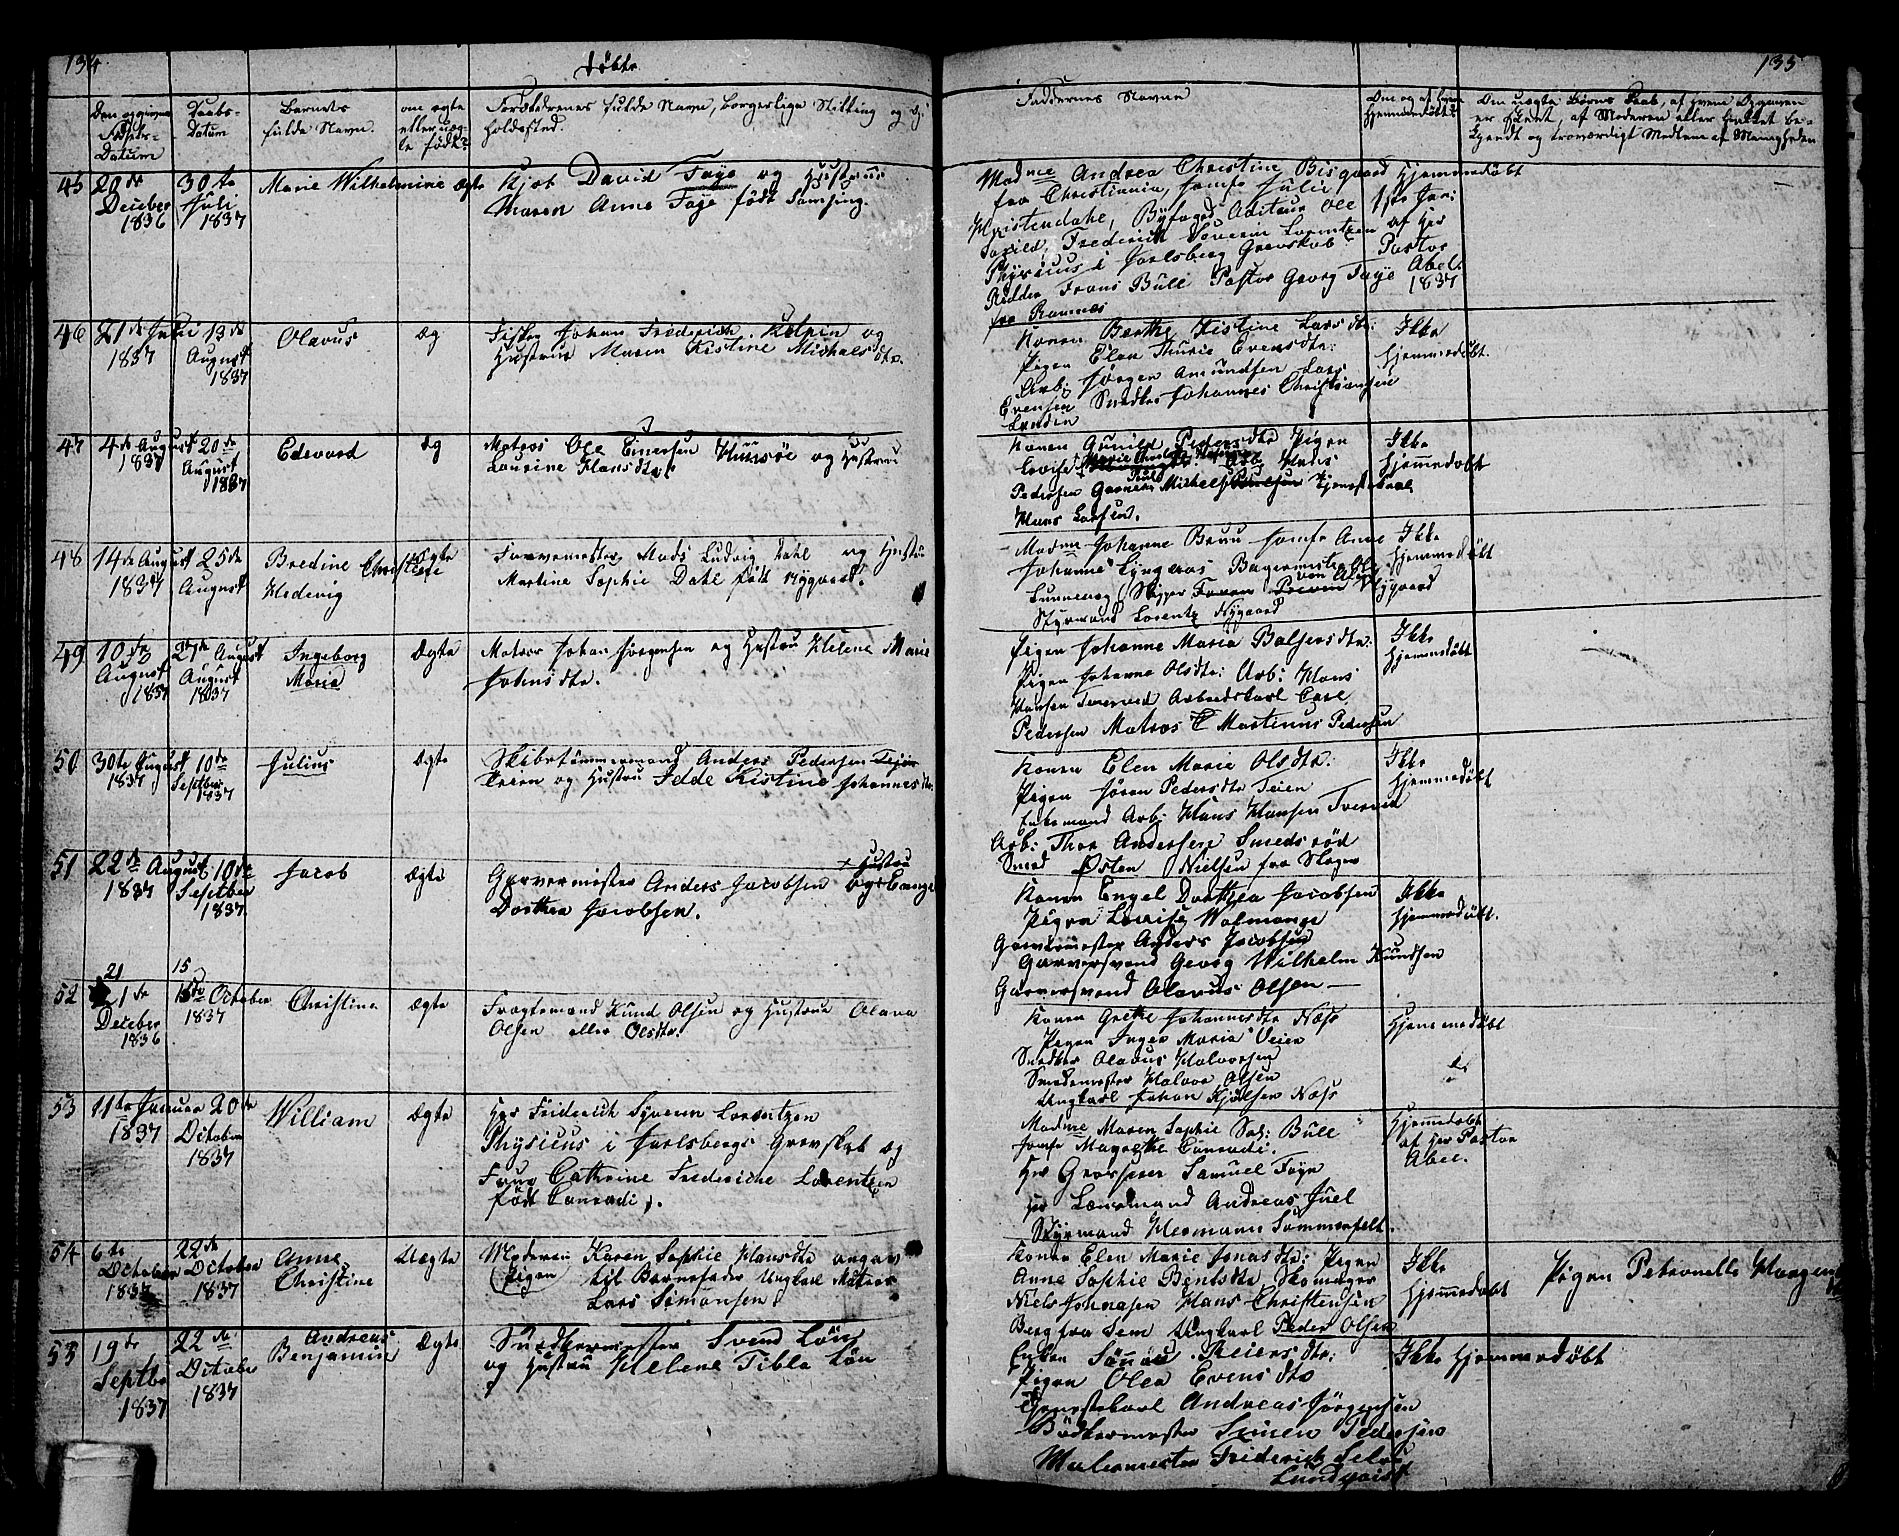 134
Døbte
Den opgivne Fødsels-Datum
Daabs-Datum
Barnets fulde Navn.
om ægte eller uægte født?
Forældrenes fulde Navn, borgerlige Stilling og Opholdssted.
45
20de December 1836
30te Juli 1837
Marie Wilhelmine
ægte
Kjøb David Faye og Hustrue
Maren Anne Faye født
46
21de 1837
13de August 1837
Olavus
æg
Fisker Johan Frederich og
Hustrue Maren Kistine Michelsdtr.
47
4de August 1837
20de August 1837
Edevard
æg
Matros Ole Einersen Huusøe og Hustrue
Laurine Hansdtr
48
14de August 1837
25de August
Bredine Christine
Hedevig
ægte
Farvemester Mads Ludvig Dahl og Hustrue
Martine Sophie Dahl født Nygaard.
49
10de August 1837
27de August
August 1837
Ingeborg
Maria
Ægte
Matros Johan Jørgensen og Hustru Helene Marie
Johnsdtr.
50
30te August 1837
10de Septber 1837
Julius
Ægte
Skibstømmermand Anders Pedersen
Veien og Hustru Kistine Johannesdtr.
51
22de August 1837
10de Septber 1837
Jacob
Ægte
× Hustru
Garvermester Anders Jacobsen og
Dorthea Jacobsen.
52
21
21de Decber 1836
15
15de October 1837
Christine
Ægte
Fragtemand Knud Olsen og Hustrue Olava
Olsen eller Olsdtr.
53
11te Januar 1837
20de October 1837
William
Ægte
Hr Friderich Severin Lorentzen
Physicus i Jarlsbergs Grevskab og
Frue Cathrine Frederiche Lorentzen
født Conradi.
54
6te October 1837
22de October 1837
Anne
Christine
Uægte
Moderen Karen Sophie Hansdtr angav
(Pigen) til Barnefader Ungkarl Matros
Lars Simonsen
55
19de Septbr 1837
22de October 1837
Andreas
Benjamin
Ægte
Snedkermester Svend Løn
og Hustru Helene Tibla Løn
135
Faddernes Navne
Om og af hvem Hjemmedøbt
Om uægte Børns Daab, af hvem Opgaven
er skeet, af Moderen eller hvilket be-
kjendt og troværdigt Medlem af Menigheden
Madme Andrea Christine Bisgaard
fra Christiania, Jomfr Julie
Byfoged Auditeur Ole
Frederich Severin Lorentzen
Physicus i Jarlsberg Grevskab
Frans Bull Pastor Georg Faye
fra Ramnes
Hjemmedøbt
1ste Jan:
af Her
Pastor
Abel.
1837
Konen Berthe Kistine Larsdtr:
Pigen Elen Thurie Evensdtr:
Arb: Jørgen Amundsen Lars
Evensen Snedker Johannes Christiansen
Ikke
Hjemmedøbt.
Konen Gunild Pedersdtr Pigen
Arb Hans
Pedersen
Hans Larsen.
Ikke
Hjemmedøbt
Madme Johanne Bruu Jomfr Anne
Johanne Lyngaas Bagermester Ole
Nygaard
Styrmand Lorentz Nygaard
Ikke
Hjemmedøbt
Pigen Johanne Maria Balzersdtr:
Pigen Johanne Olsdtr: Arb: Hans
Hansen Arbeidskarl Carl
Pedersen Matros Martinus Pedersen
Ikke
Hjemmedøbt
Konen Elen Marie Olsdtr.
Pigen Jøran Pedersdtr Veien
Enkemand Arb: Hans Hansen
Arb: Thor Andersen Smedsrød
Smed Østen Nielsen fra Slagen
Ikke
Hjemmedøbt
Konen Engel Dorthea Jacobsen
Pigen Lovise
Garvermester Anders Jacobsen
Garversvend Georg Wilhelm Knudsen
Garversvend Olavus Olsen
Ikke
Hjemmedøbt.
Konen Grethe Johannesdtr Næss
Pigen Inger Maria Veien
Snedker Olavus Halvorsen
Smedemester Halvor Olsen
Ungkarl Johan Kjølsen Næss
Hjemmedøbt
Madme Maren Sophie Sal: Bull
Jomfr Magrethe Conradi.
Hr Grosserer Samuel Faye
Hr Lænsmand Andreas Juel
Styrmand Hermann Sommerfelt.
Hjemmedøbt
af Her Pastor
Abel.
Konen Elen Marie Jonasdtr: Pigen
Anne Sophie Bentsdtr Skomager
Niels Johnasen Hans Christensen
Berg fra Sem Ungkarl Peder Olsen
Ikke
Hjemmedøbt
Pigen Petronelle
Enken Reiersdtr:
Pigen Olea Evensdtr
Tjenestekarl Andreas Jørgensen
Bødkermester Simen Pedersen
Malermester Friderich
Lundqvist
Ikke Hjemmedøbt